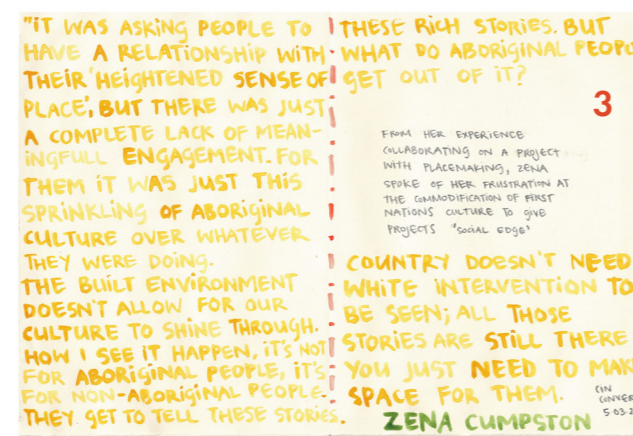 "IT WAS ASKING PEOPLE TO
HAVE A RELATIONSHIP WITH
THEIR 'HEIGHTENED SENSE OF
PLACE', BUT THERE WAS JUST
A COMPLETE LACK OF MEAN-
INGFULL ENGAGEMENT. FOR
THEM IT WAS JUST THIS
SPRINKLING OF ABORIGINAL
CULTURE OVER WHATEVER
THEY WERE DOING.
THE BUILT ENVIRONMENT
DOESN'T ALLOW FOR OUR
CULTURE TO SHINE THROUGH.
HOW I SEE IT HAPPEN, IT'S NOT
FOR ABORIGINAL PEOPLE, IT'S
FOR NON-ABORIGINAL PEOPLE.
THEY GET TO TELL THESE STORIES.
THESE RICH STORIES. BUT
WHAT DO ABORIGINAL PEOPL
GET OUT OF IT?
3
FROM HER EXPERIENCE
COLLABORATING ON A PROJECT
WITH PLACEMAKING, ZENA
SPOKE OF HER FRUSTRATION AT
THE COMMODIFICATION OF FIRST
NATIONS CULTURE TO GIVE
PROJECTS "SOCIAL EDGE'
COUNTRY DOESN'T NEED
WHITE INTERVENTION TO
BE SEEN; ALL THOSE
STORIES ARE STILL THERE
YOU JUST NEED TO MAK
SPACE FOR THEM.
(IN
CONVER
5.03.2
ZENA CUMPSTON